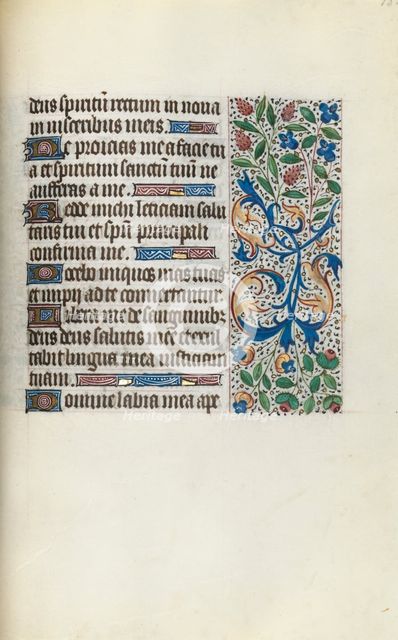 deus spiritū rectum in nova
in visceribus meis.
Ne proicias me a facie tu
a et spiritum sanctū tuū ne
auferas a me.
Redde michi leticiam salu
taris tui et spū principali
confirma me.
Docebo iniquos vias tuas
et impii ad te convertentur.
Libera me de sanguinibz
deus deus salutis mee et exul
tabit lingua mea iusticiam
tuam.
Domine labia mea ape
Heritage
Heritage